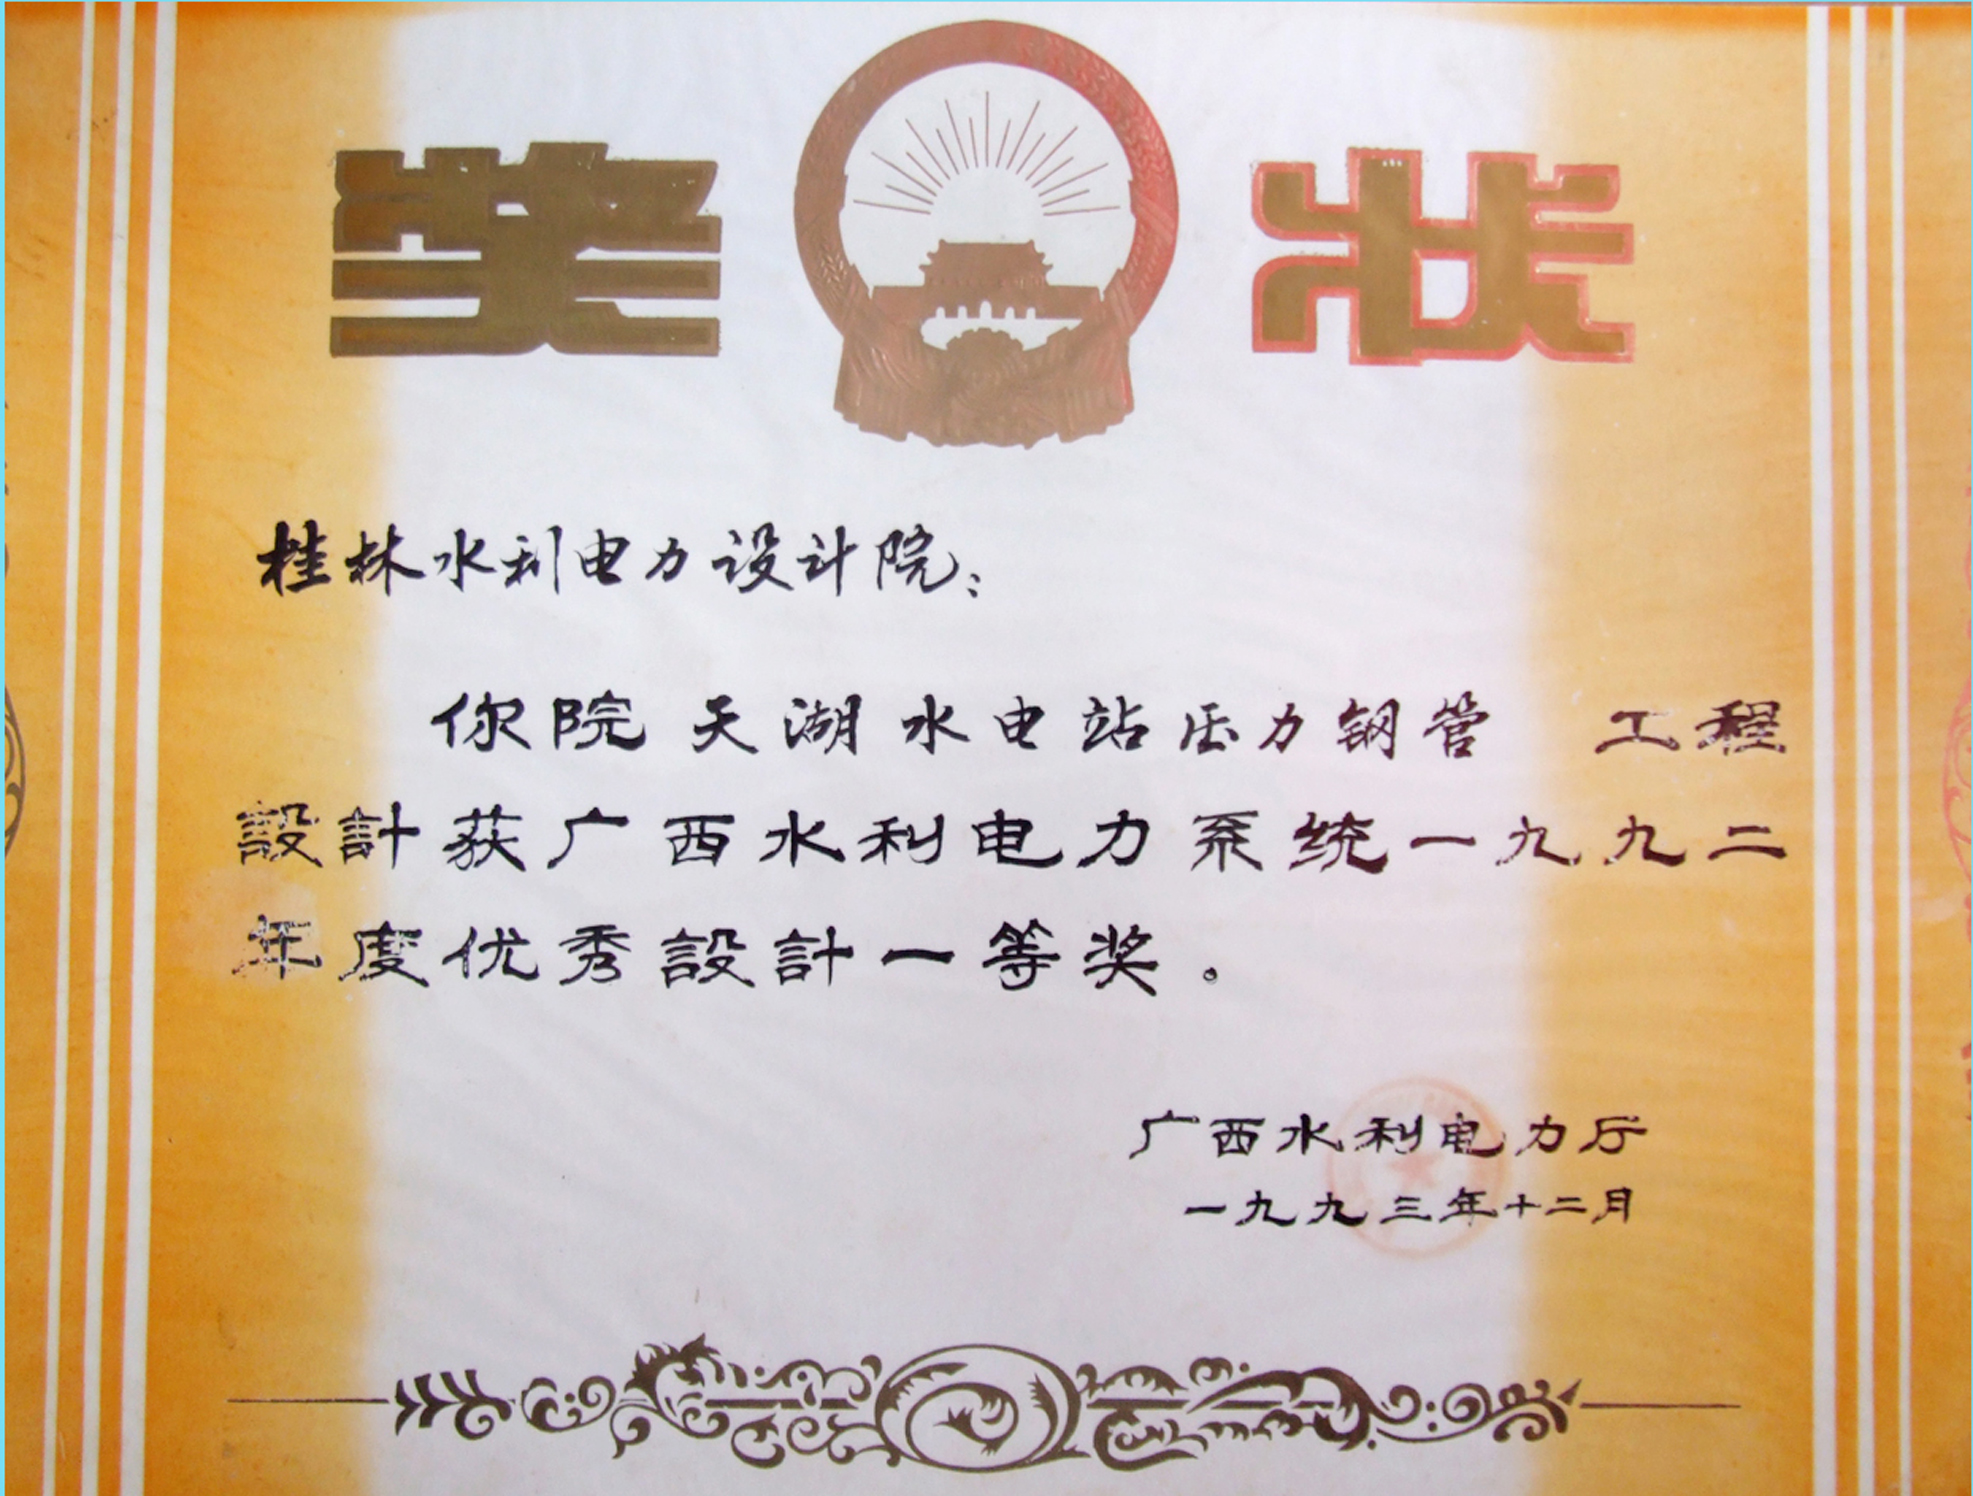 奖状
桂林水利电力设计院：
你院天湖水电站压力钢管 工程
設計获广西水利电力系统一九九二
年度优秀設計一等奖。
广西水利电力厅
一九九三年十二月